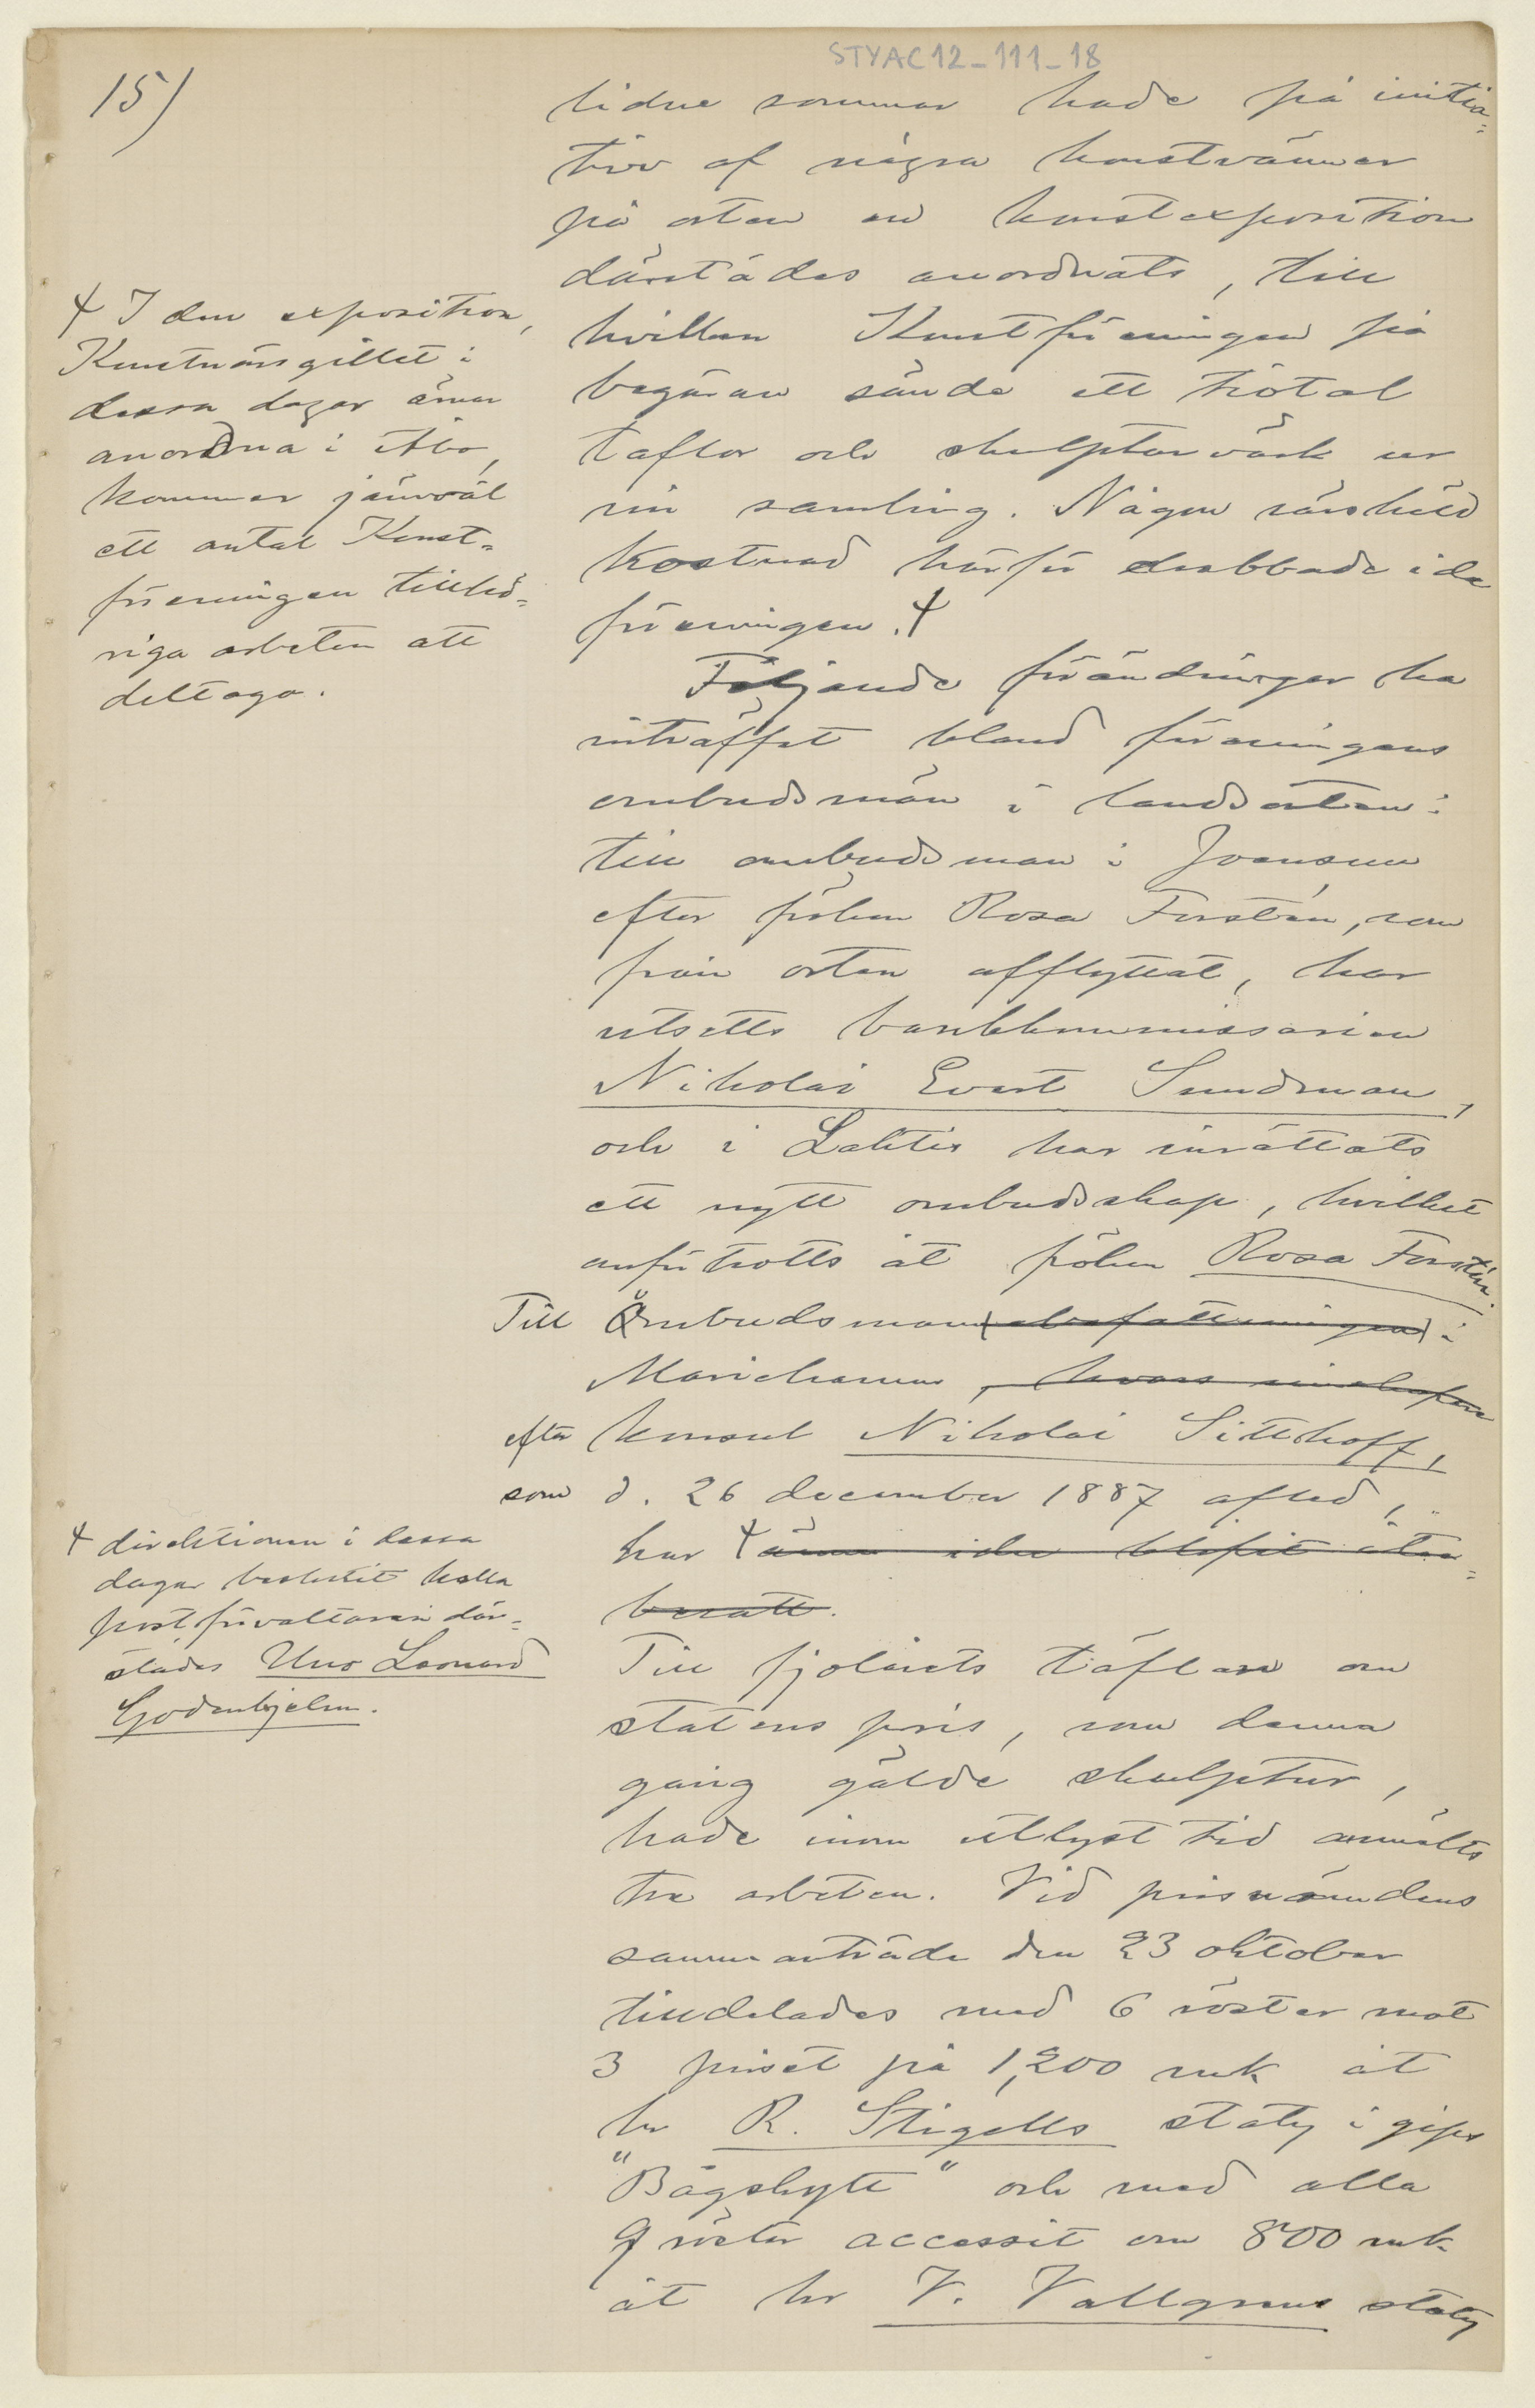 STYAC12-111-18
15)
lidne sommar hade på initia-
tiv af några konstvänner
på orten en konstexposition
därstädes anordnats, till
hvilken Konstföreningen på
begäran sände ett tiotal
taflor och skulpturvärk ur
sin samling. Någon särskild
kostnad härför drabbade icke
föreningen. ⍭
⍭ I den exposition,
Konstnärsgillet i
dessa dagar ämar
anordna i Åbo,
kommer jämväl
ett antal Konst-
föreningen tillhö-
riga arbeten att
deltaga.
Följande förändringar ha
inträffat bland föreningens
ombudsmän i landsorten:
till ombudsman i Joensuu
efter fröken Rosa Forstén, som
från orten afflyttat, har
utsetts bankkommissarien
Nikolai Evert Sundman,
och i Lahtis har inrättats
ett nytt ombudsskap, hvilket
anförtrotts åt fröken Rosa Forstén.
Till Ombudsman(sbefattningen) i
Mariehamn, hvars innehafvare
efter konsul Nikolai Sittkoff,
som d. 26 december 1887 afled,
har ⍭ ännu icke blifvit åter-
besatt.
⍭ direktionen i dessa
dagar beslutit kalla
postförvaltaren där-
städes Uno Leonard
Godenhjelm.
Till fjolårets täflan om
statens pris, som denna
gång gälde skulptur,
hade inom utlyst tid anmälts
tre arbeten. Vid prisnämndens
sammanträde den 23 oktober
tilldelades med 6 röster mot
3 priset på 1,200 mk åt
hr R. Stigells staty i gips
"Bågskytt" och med alla
9 röster accessit om 800 mk
åt hr V. Vallgrens staty